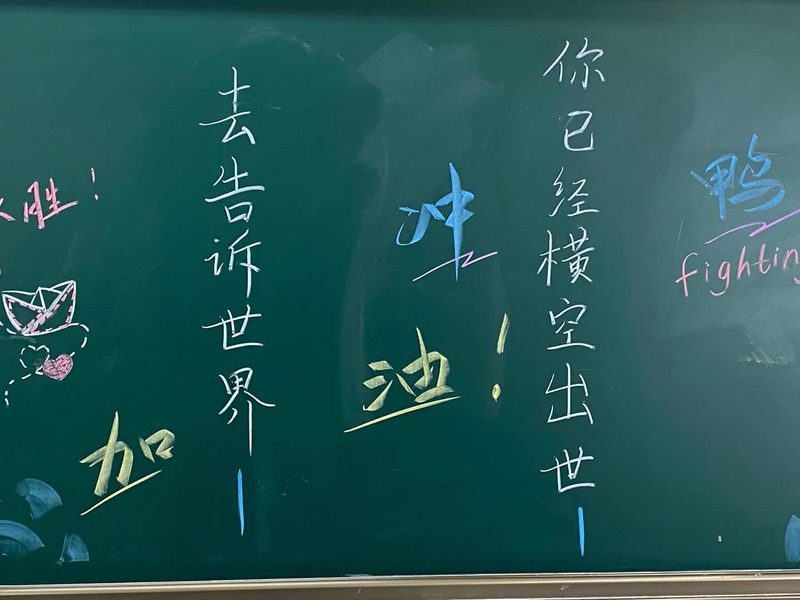 胜！
去告诉世界
你已经横空出世
冲鸭
fighting
加油！